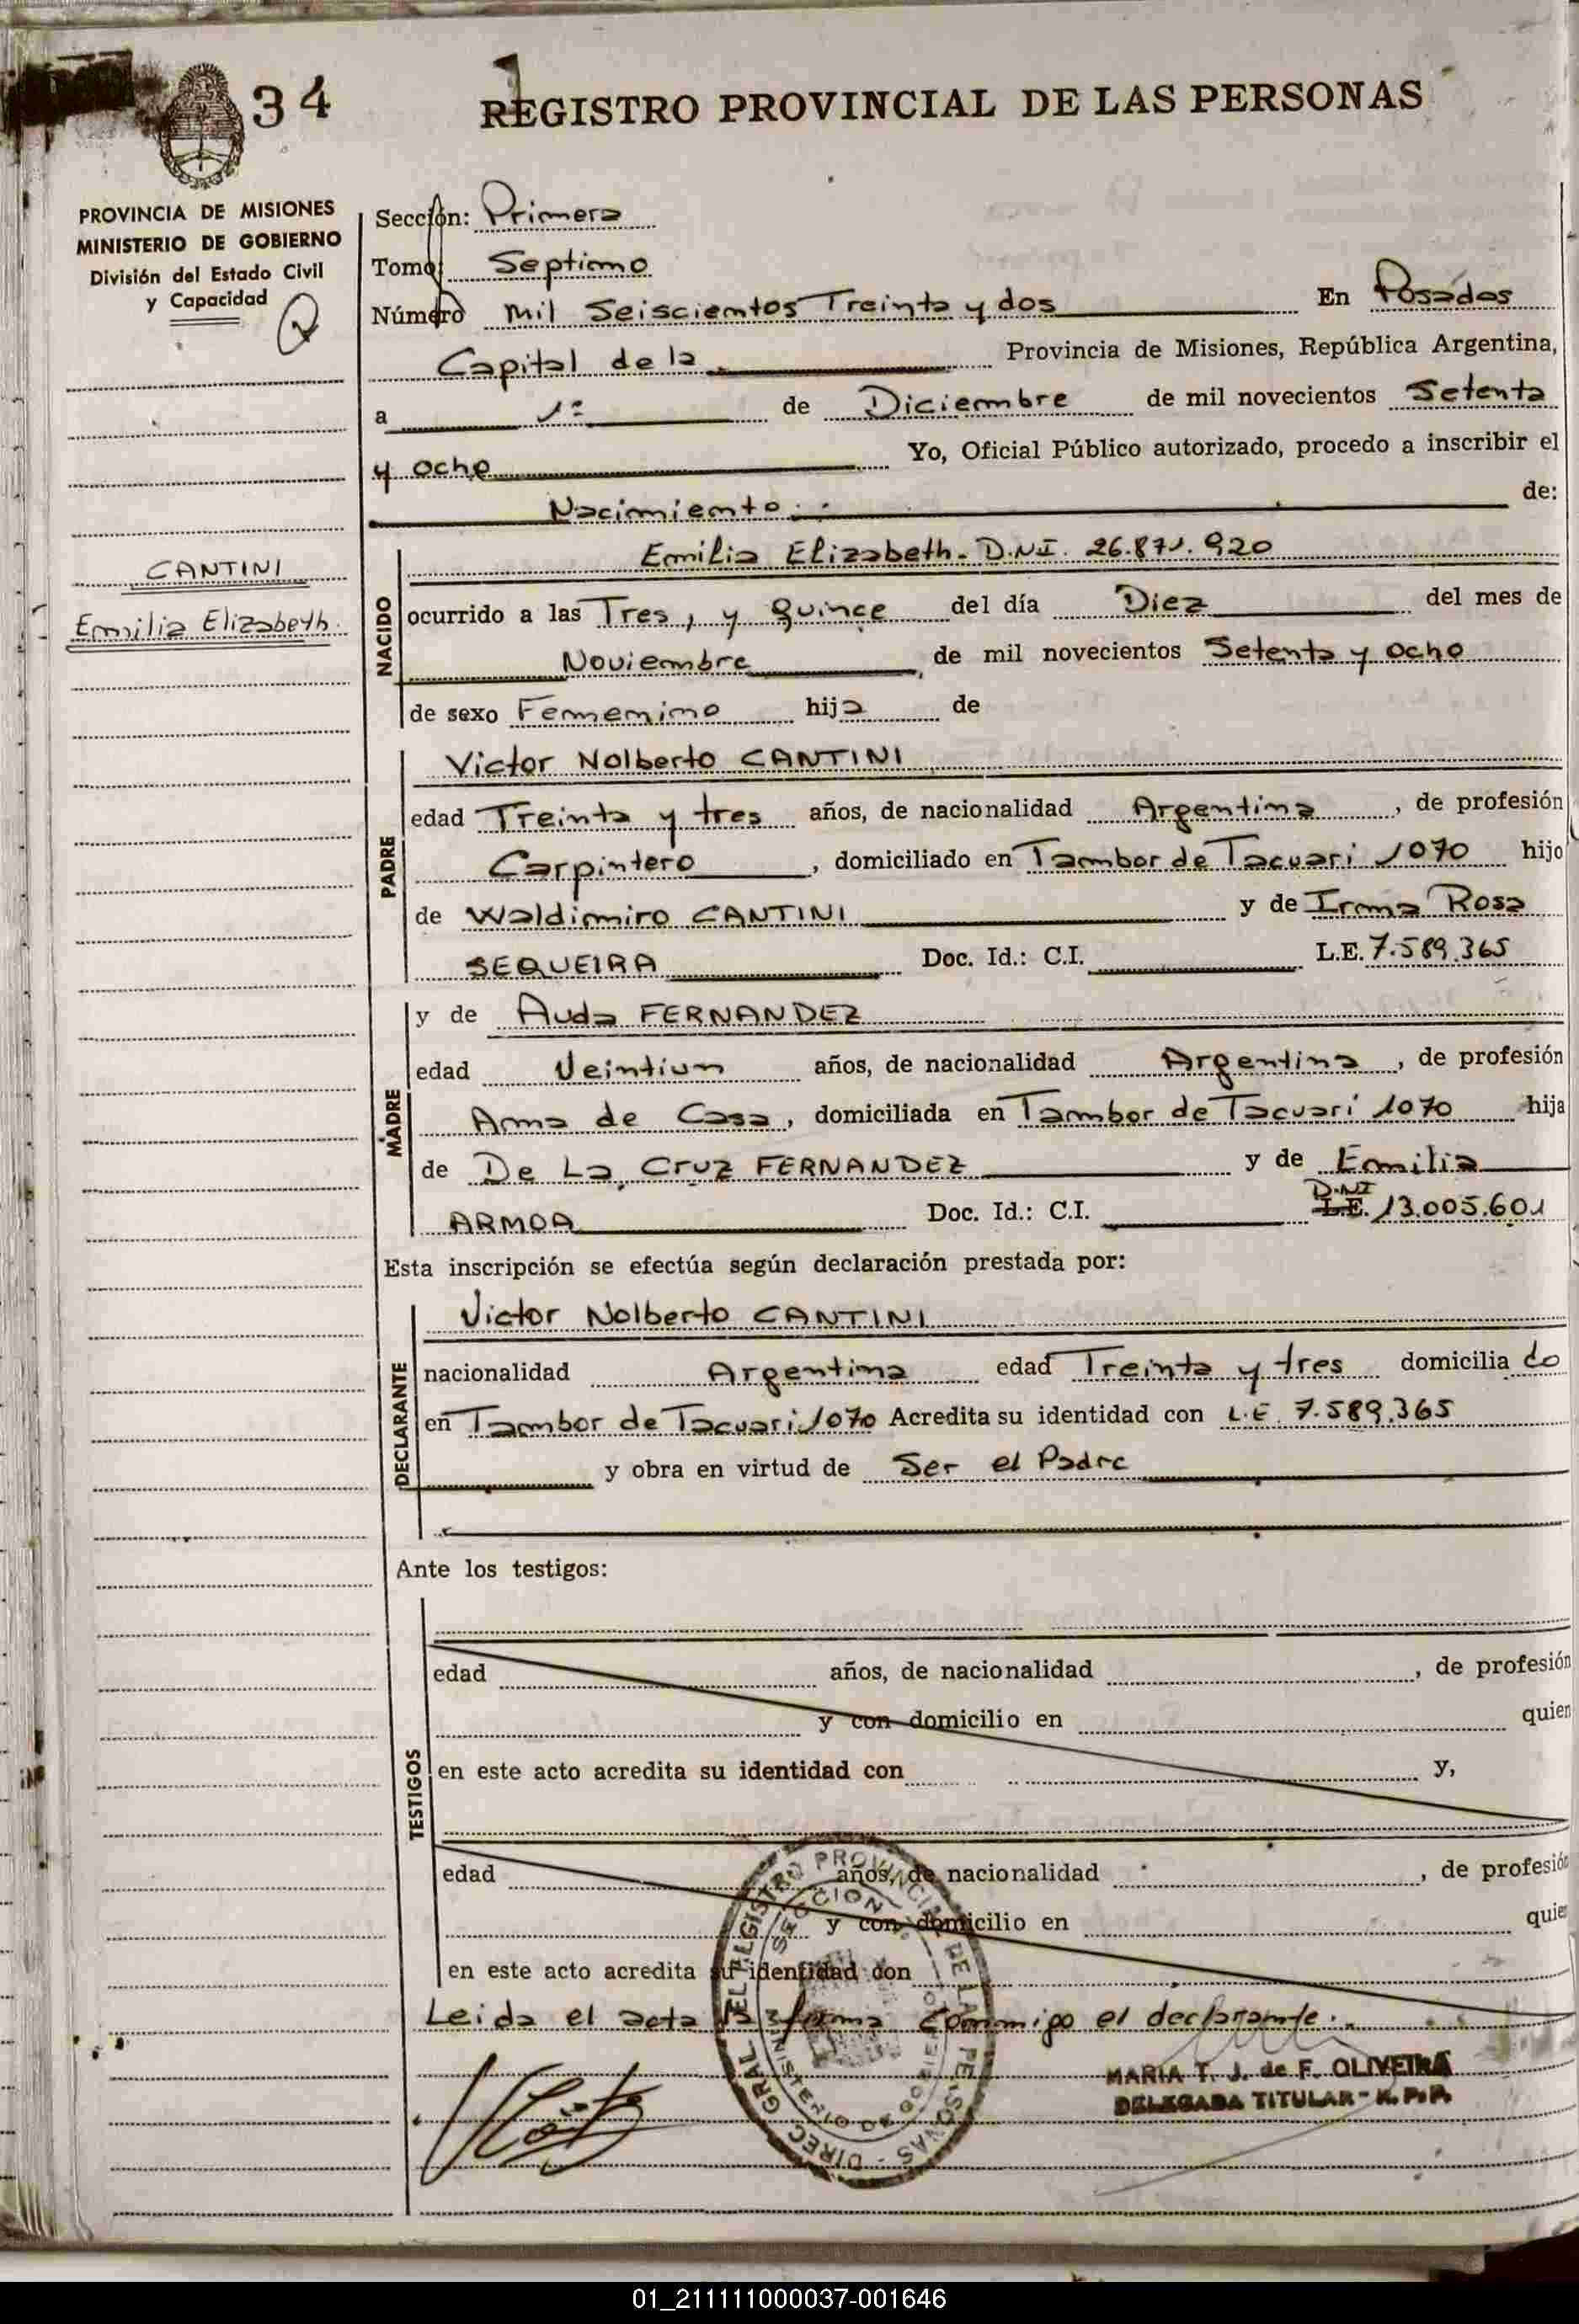 34
REGISTRO PROVINCIAL DE LAS PERSONAS
PROVINCIA DE MISIONES
MINISTERIO DE GOBIERNO
División del Estado Civil
y Capacidad
CANTINI
Emilia Elizabeth.
Sección: Primera
Tomo Septimo
Número mil Seiscientos Treinta y dos En Posadas
Capital de la Provincia de Misiones, República Argentina,
a 1º de Diciembre de mil novecientos Setenta
y ocho Yo, Oficial Público autorizado, procedo a inscribir el
Nacimiento de:
NACIDO
Emilia Elizabeth- D.N.I. 26.871.920
ocurrido a las Tres, y quince del día Diez del mes de
Noviembre, de mil novecientos Setenta y ocho
de sexo Femenino hija de
PADRE
Victor Nolberto CANTINI
edad Treinta y tres años, de nacionalidad Argentina, de profesión
Carpintero, domiciliado en Tambor de Tacuari 1070 hijo
de Waldimiro CANTINI y de Irma Rosa
SEQUEIRA Doc. Id.: C.I. L.E. 7.589.365
MADRE
y de Auda FERNANDEZ
edad Veintiun años, de nacionalidad Argentina, de profesión
Ama de Casa, domiciliada en Tambor de Tacuarí 1070 hija
de De La Cruz FERNANDEZ y de Emilia
ARMOA Doc. Id.: C.I. D.NI L.E. 13.005.601
Esta inscripción se efectúa según declaración prestada por:
DECLARANTE
Victor Nolberto CANTINI
nacionalidad Argentina edad Treinta y tres domicilia do
en Tambor de Tacuari 1070 Acredita su identidad con L.E. 7.589.365
y obra en virtud de Ser el Padre
Ante los testigos:
TESTIGOS
edad años, de nacionalidad , de profesión
y con domicilio en quien
en este acto acredita su identidad con y,
edad años, de nacionalidad , de profesió
y con domicilio en quie
en este acto acredita su identidad con
Leida el acta la firma Conmigo el declarante.
DIREC. GRAL. DEL REGISTRO PROVINCIAL DE LAS PERSONAS
SECCION
MINISTERIO DE GOBIERNO
MARIA T. J. de F. OLIVEIRA
DELEGADA TITULAR - R. P. P.
01_211111000037-001646